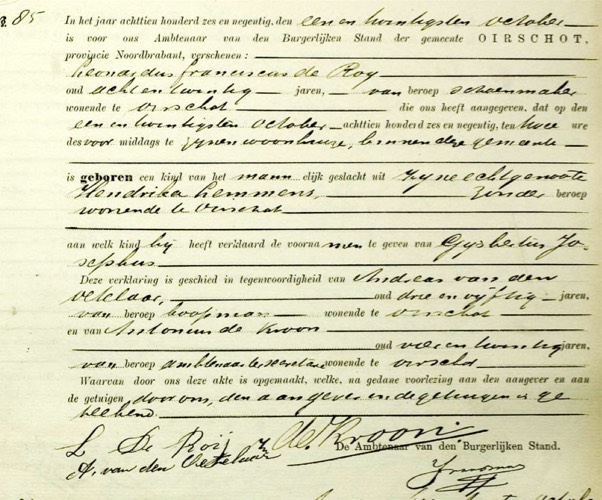 №. 85
In het jaar achttien honderd zes en negentig, den een en twintigsten october
is voor ons Ambtenaar van den Burgerlijken Stand der gemeente OIRSCHOT,
provincie Noordbrabant, verschenen:
Leonardus Franciscus de Roy
oud acht en twintig jaren, van beroep schoenmaker
wonende te Oirschot die ons heeft aangegeven, dat op den
een en twintigsten October achttien honderd zes en negentig, ten twee ure
des voor middags te zynen woonhuize, binnen deze gemeente
is geboren een kind van het mann elijk geslacht uit zyne echtgenoote
Hendrika Lemmens, zonder beroep
wonende te Oirschot
aan welk kind hy heeft verklaard de voorna men te geven van Gysbertus Jo-
sephus
Deze verklaring is geschied in tegenwoordigheid van Andreas van den
Oetelaar, oud drie en vyftig jaren,
van beroep koopman wonende te Oirschot
en van Antonius de Kroon
oud vier en twintig jaren,
van beroep ambtenaar ter secretarie wonende te Oirschot
Waarvan door ons deze akte is opgemaakt, welke, na gedane voorlezing aan den aangever en aan
de getuigen door ons, den aangever en de getuigen is ge
teekend.
L De Roij
A. de Kroon
De Ambtenaar van den Burgerlijken Stand.
A. van den Oetelaar